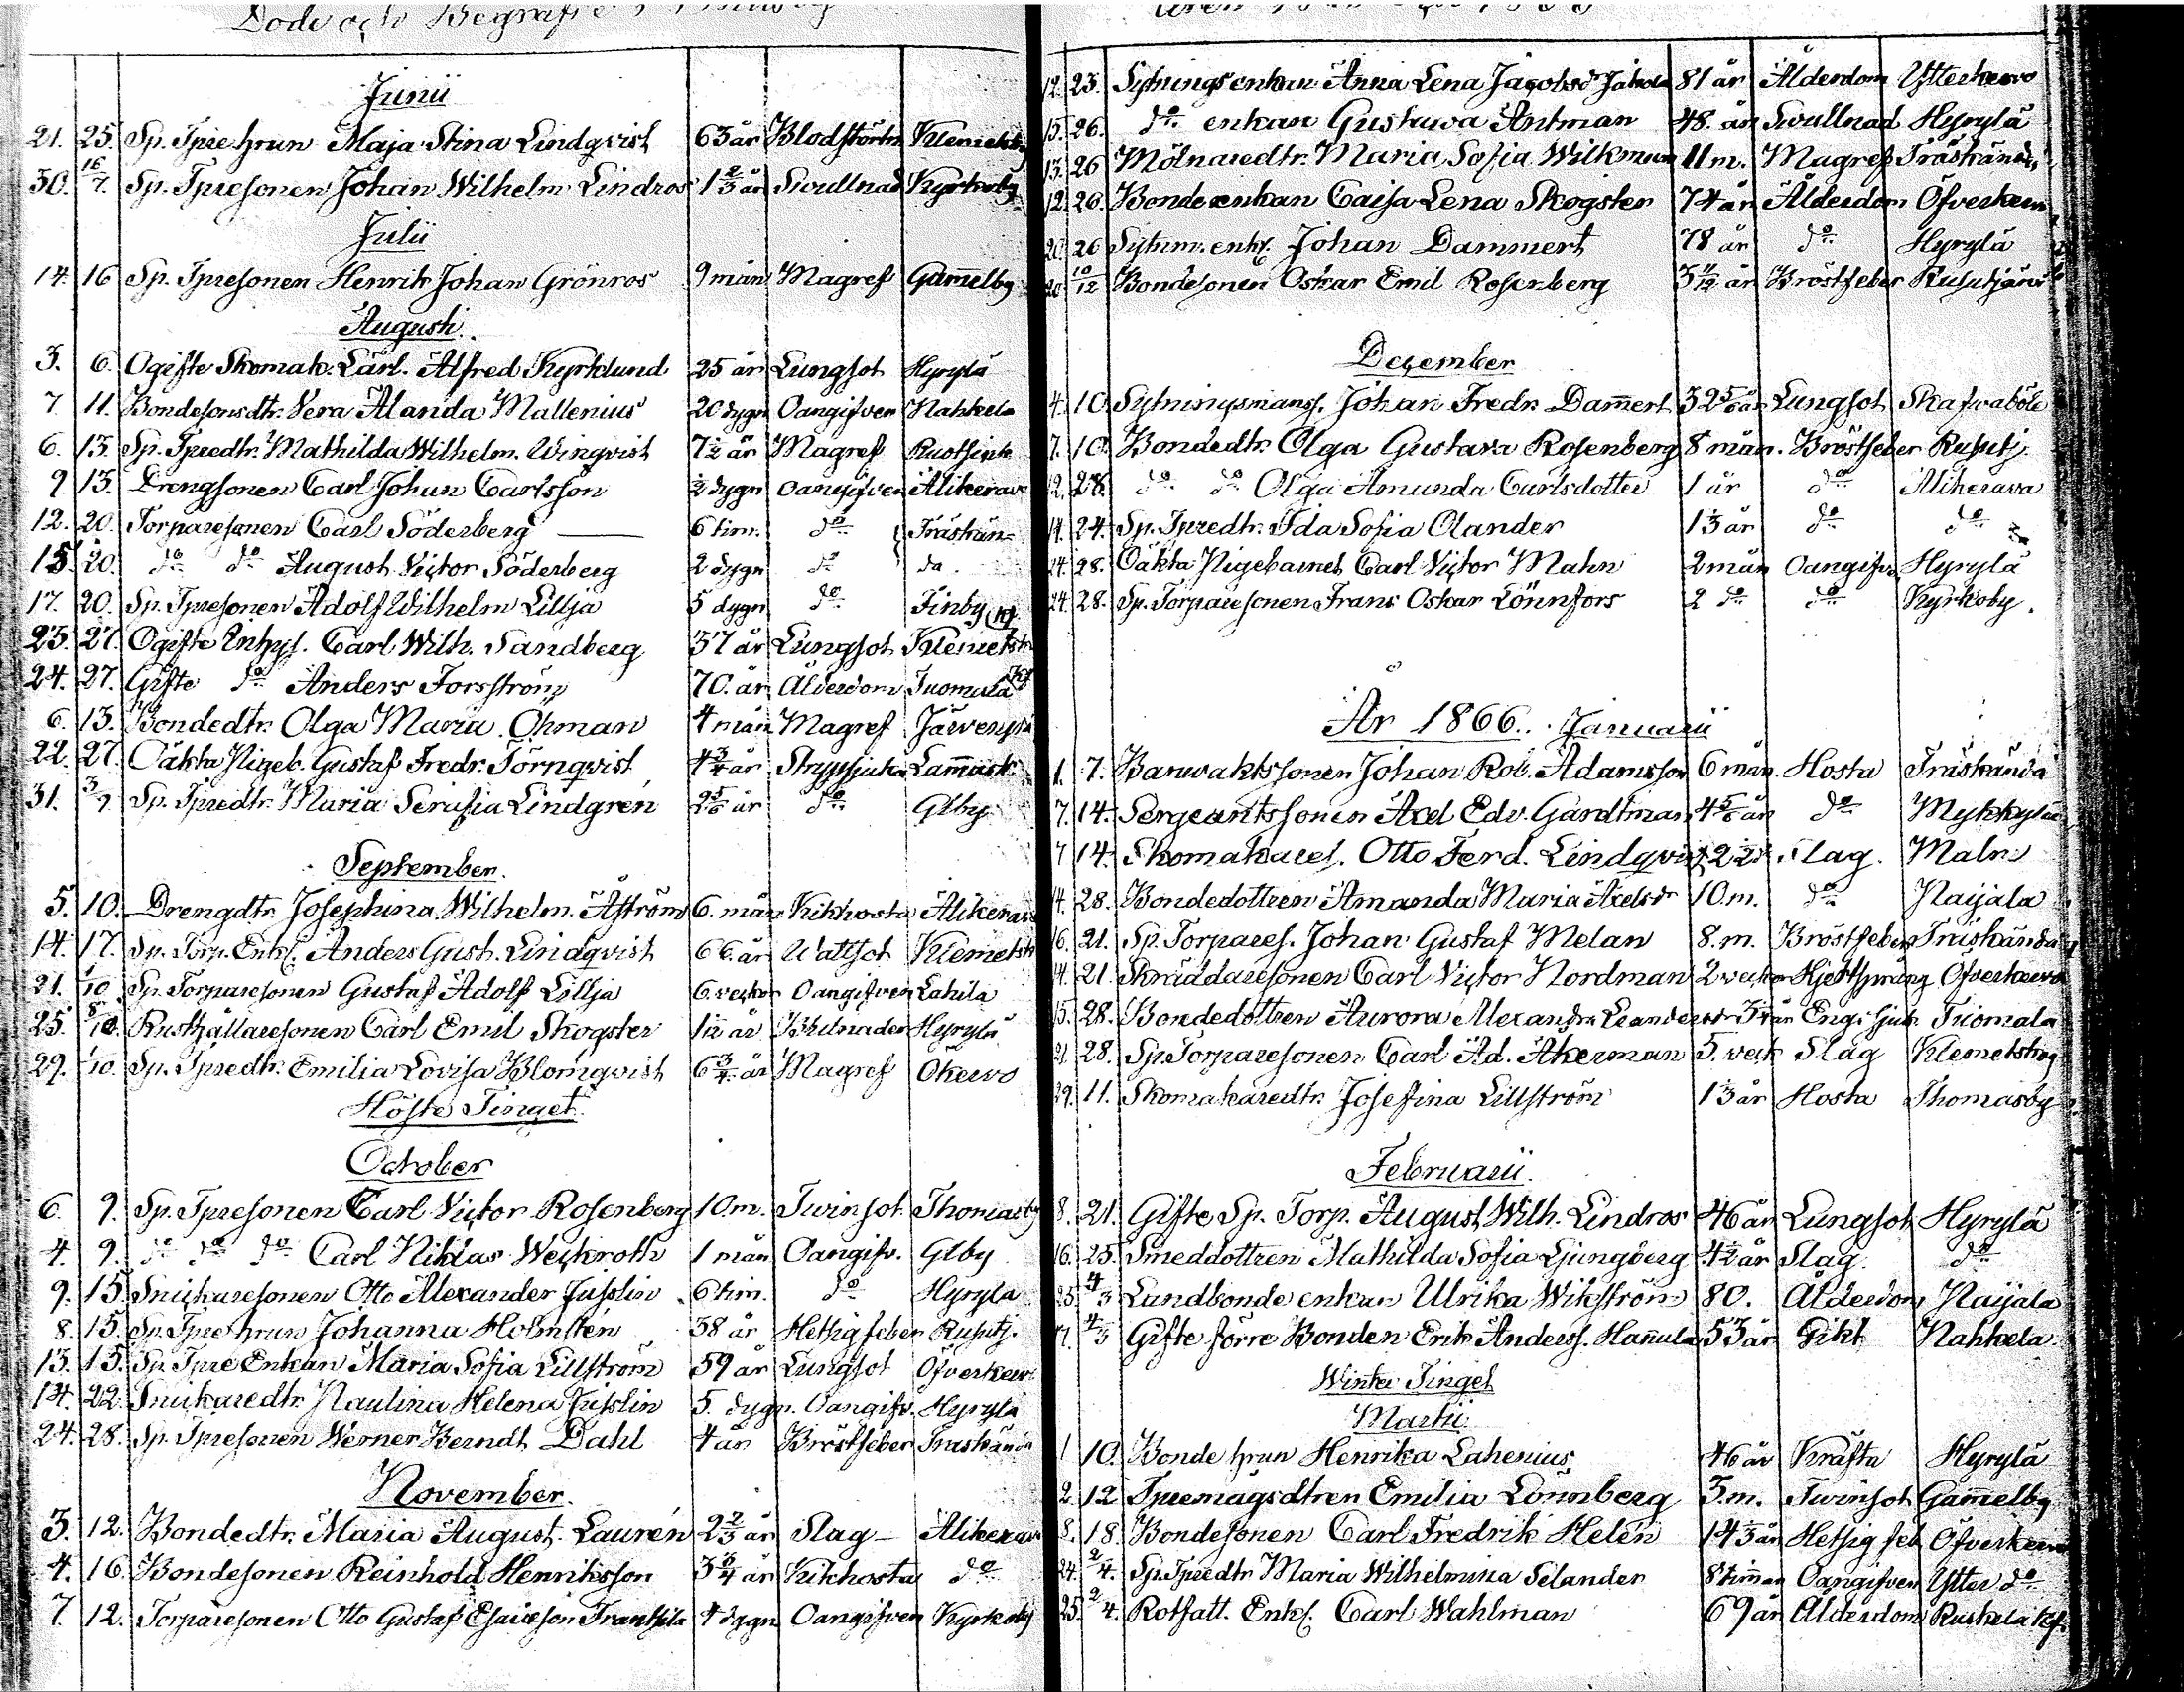 Döde och Begrafne
Junii
21. 25. Sp. Tprehrun Maja Stina Lindqvist 63 år Blodstörtn
30. 16/7. Sp. Tpresonen Johan Wilhelm Lindros 1 2/3 år Swullnad Kyrkoby
Julii
14. 16 Sp. Tpresonen Henrik Johan Grönros 9 mån Magref Gam̄elby
Augusti.
3. 6. Ogifte Skomak. Lärl. Alfred Kyrklund 25 år Lungsot Hyrylä
7 11. Bondesonsdtr. Vera Alanda Mallenius 20 dygn Oangifven Nahkela
6. 13. Sp. Tpredtr. Mathilda Wilhelm. Winqvist 7 1/2 år Magref
9. 13. Drengsonen Carl Johan Carlsson 1/2 dygn Oangifven Alikerava
12. 20. Torparesonen Carl Söderberg 6 tim. do Träskän-
15. 20. do do August Victor Söderberg 2 dygn do da.
17. 20. Sp. Tpresonen Adolf Wilhelm Lillja 5 dygn do Finby
23. 27. Ogifte Inhys. Carl Wilh. Sandberg 37 år Lungsot Klemetsk
24. 27. Gifte do Anders Forsström 70. år Ålderdom Tuomala
6. 13. Bondedtr. Olga Maria Öhman 4 mån Magref Järvenpä
22. 27. Oäkta Pigeb. Gustaf Fredr. Törnqvist 4 3/4 år Strypsjuka
31. 3/9 Sp. Tpredtr. Maria Serafia Lindgrén 2 5/6 år do Glby
September.
5. 10. Drengdtr. Josephina Wilhelm. Åström 6. mån Kikhosta Alikerava
14. 17. Sp. Torp. Enkl. Anders Gust. Lindqvist 66. år Wattsot Klemetsk
21. 1/10 Sp. Torparesonen Gustaf Adolf Lillja 6. veckor Oangifven Lahila
25. 8/10. Rusthållaresonen Carl Emil Skogster 1 1/12 år Bulnader Hyrylä
29. 1/10. Sp. Tpredtr. Emilia Lovisa Blomqvist 6 3/4 år Magref Ökervo
Höste Tinget.
October
6. 9. Sp. Tpresonen Carl Victor Rosenberg 10. m. Twinsot Thomasby
4. 9. do do do Carl Niklas Weckroth 1 mån Oangifv. Glby
9. 15. Snickaresonen Otto Alexander Jusslin 6 tim. do Hyryla
8. 15. Sp. Tprehrun Johanna Holmstén 38 år Hetsigfeber Rusutj.
13. 15. Sp. Tpre Enkan Maria Sofia Lillström 59 år Lungsot Öfverkerv
14. 22. Snickaredtr. Paulina Helena Jusslin 5. dygn. Oangifv. Hyrylä
24. 28. Sp. Tpresonen Werner Berndt Dahl 4 år Bröstfeber Träskända
November.
3. 12. Bondedtr. Maria August. Laurén 2 2/3 år Slag Alikerava
4. 16. Bondesonen Reinhold Henriksson 3 3/4 år Kikhosta do
7 12. Torparesonen Otto Gustaf Esaiæson Frantsila 4 dygn Oangifven Kyrkoby
12. 23. Sytningsenkan Anna Lena Jacobsdr 81 år Ålderdom Ytterkervo
15. 26. do enkan Gustawa Antman 48. år Swullnad Hyrylä
13. 26 Mölnaredtr. Maria Sofia Wilkman 11 m. Magref Träskända
12. 26. Bondeenkan Caisa Lena Skogster 74 år Ålderdom Öfverkerv
20. 26 Sytnm. enkl. Johan Dammert 78 år do Hyrylä
20 10/12 Bondesonen Oskar Emil Rosenberg 3 11/12 år Bröstfeber Rusutjärvi
December
4. 10. Sytningsmans. Johan Fredr. Dam̄ert 32 5/6 år Lungsot Skafvaböle
7. 10. Bondedtr. Olga Gustava Rosenberg 8 mån. Bröstfeber Rusutj.
12. 28. do do Olga Amanda Carlsdotter 1 år do Alikerava
14. 24. Sp. Tpredtr. Ida Sofia Olander 1 1/3 år do do
24. 28. Oäkta Pigebarnet Carl Victor Malm 2 mån Oangifv. Hyrylä
24. 28. Sp. Torparesonen Frans Oskar Lönnfors 2 do do Kyrkoby.
År 1866. Januarii
1. 7. Barwaktssonen Johan Rob. Adamsson 6 mån. Hosta Träskända
7. 14. Sergeantssonen Axel Edv. Gardtman 4 5/6 år do Mykkylä
7 14. Skomakares. Otto Ferd. Lindqvist Slag. Malm
14. 28. Bondedottren Amanda Maria Axelsdr 10 m. do Paijala
16. 21. Sp. Torpares. Johan Gustaf Melan 8. m. Bröstfeber Träskända
14. 21 Skräddaresonen Carl Victor Nordman 2 veckor Hjertsprång Öfverkervo
15. 28. Bondedottren Aurora Alexandra Leandersdr år Eng. sjuk. Tuomala
21. 28. Sp. Torparesonen Carl Ad. Åkerman 5. veck Slag Klemetskog
29. 11. Skomakaredtr. Josefina Lillström 1 1/3 år Hosta Thomasby
Februarii.
8. 21. Gifte Sp. Torp. August Wilh. Lindros 46 år Lungsot Hyrylä
16. 25. Smeddottren Mathilda Sofia Ljungberg 4 1/2 år Slag. do
25. 4/3 Landbonde enkan Ulrika Wikström 80. Ålderdom Paijala
17. 4/3 Gifte förre Bonden Erik Anders. Han̄ula 53 år Gikt Nahkela
Winter Tinget
Martii.
1 10. Bonde hrun Henrika Lahenius 46 år Kräfta Hyrylä
2. 12 Tpremågsdtren Emilia Lönnberg 3. m. Twinsot Gam̄elby
8. 18. Bondesonen Carl Fredrik Helén 14 1/3 år Hetsig feb Öfverkervo
24. 2/4. Sp. Tpredtr Maria Wilhelmina Selander 8 tim̄ar Oangifven Ytter do
25. 2/4. Rotfatt. Enkl. Carl Wahlman 69 år Ålderdom Ruskela